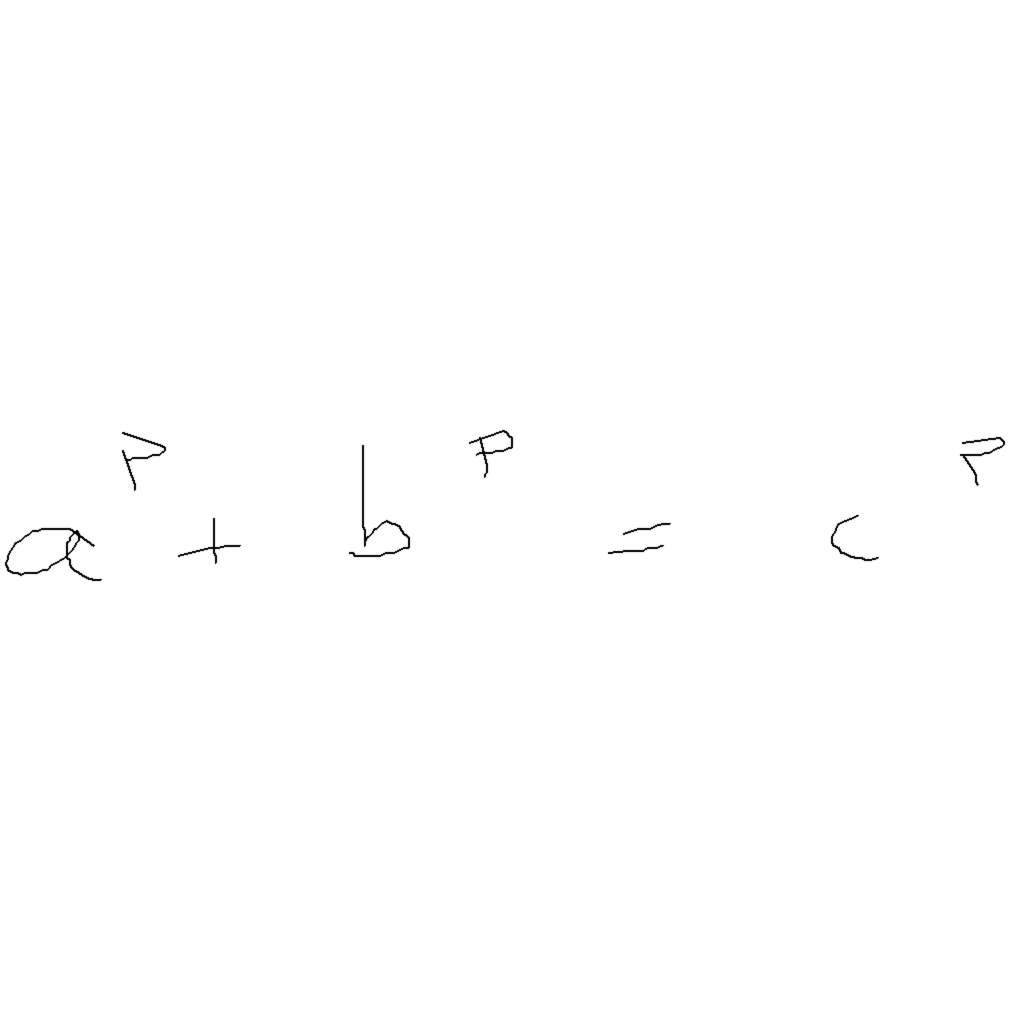 a^p + b^p = c^p